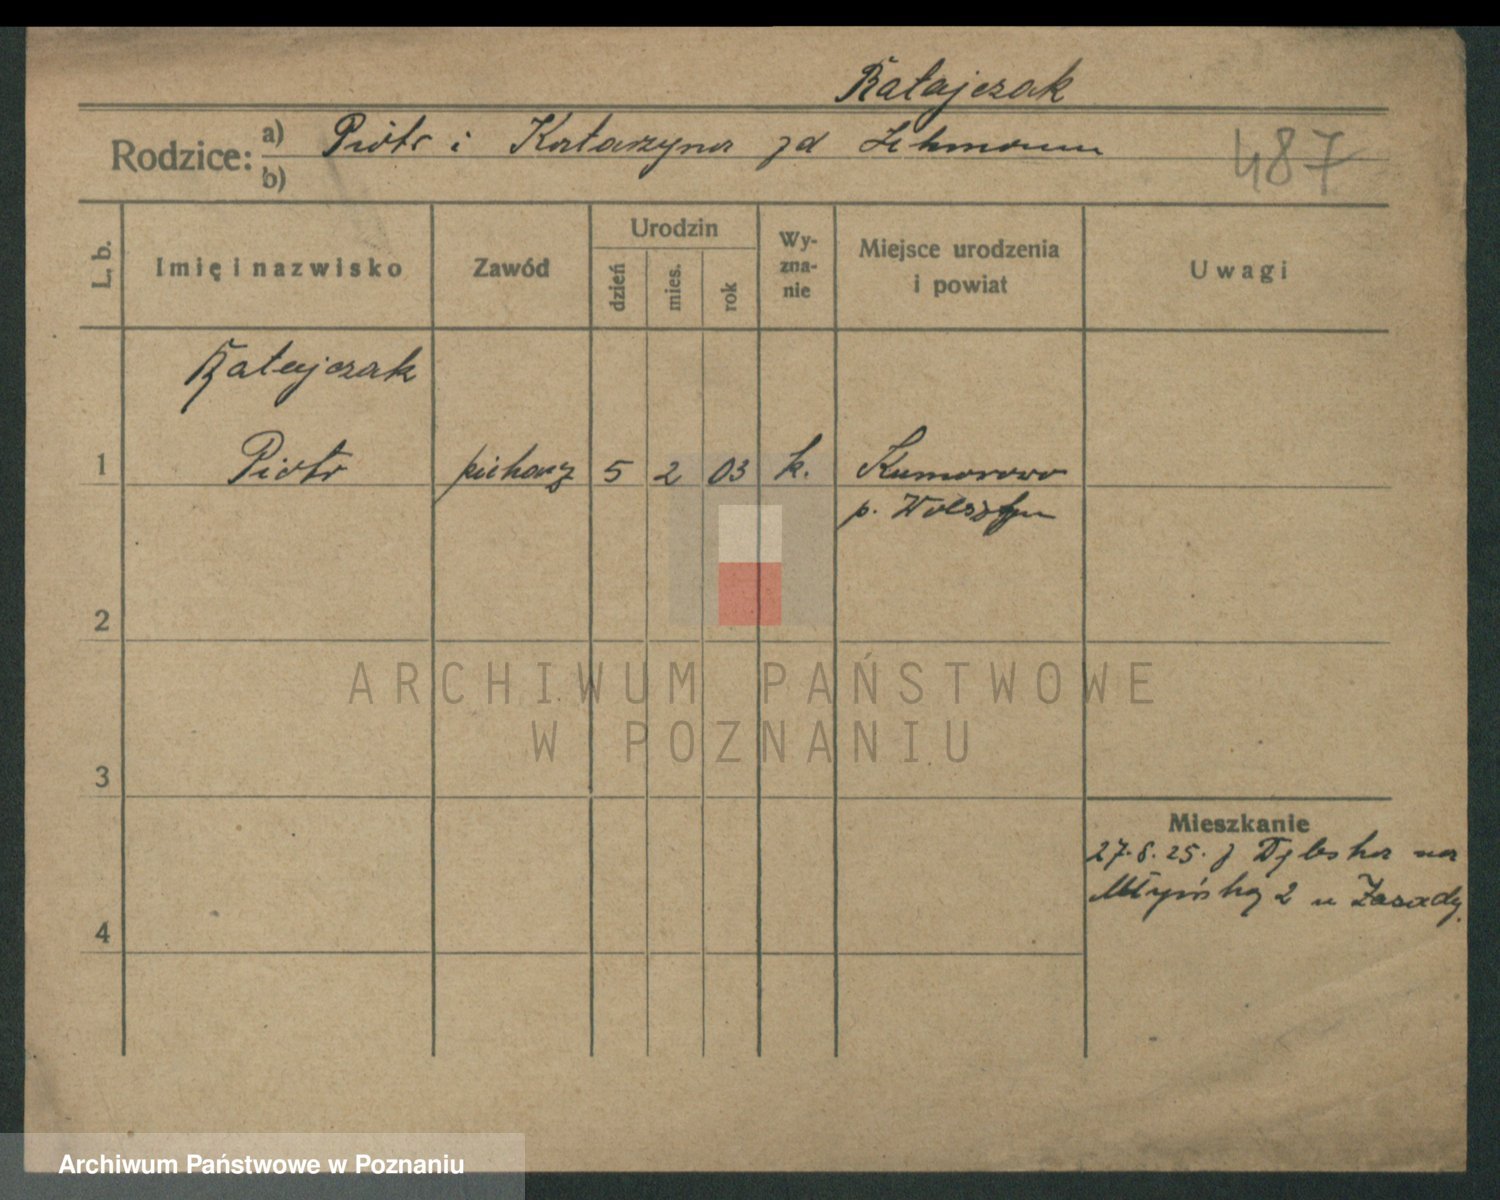 Ratajczak
Rodzice: a) Piotr i Katarzyna zd Lehmann
b)
487
L. b.
Imię i nazwisko
Zawód
Urodzin
dzień
mies.
rok
Wy-
zna-
nie
Miejsce urodzenia
i powiat
Uwagi
Ratajczak
1 Piotr piekarz 5 2 03 k. Komorowo
p. Wolsztyn
2
ARCHIWUM PAŃSTWOWE
W POZNANIU
3
4
Mieszkanie
27.8.25. z na
Młyńską 2 u Zasady.
Archiwum Państwowe w Poznaniu